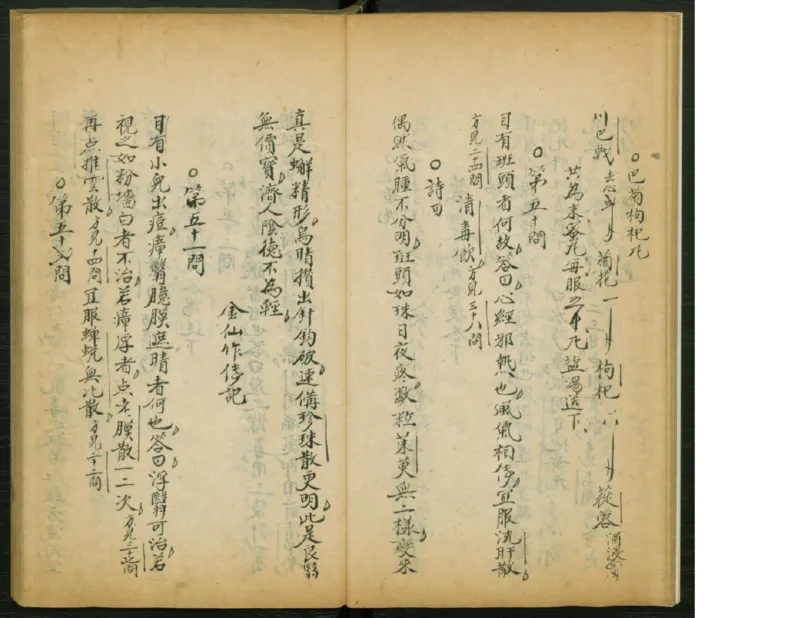 ○巴菊枸杞丸
川巴戟 去心 菊花 一 枸杞 蓯蓉 酒浸
共為末蜜丸每服 丸盐湯送下
○第五十問
目有班頭者何故答曰心經邪熱也風氣相傳宜服流肝散
方見二十四問 清毒飲 方見三十八問
○詩曰
偶然氣腫不分明班頭如珠日夜疼散粒茱萸無二樣變來
真是蠏精形烏睛攢出針鈎破速僃珍珠散更明此是良
無價寶濟人陰德不為輕
金仙作傳記
○第五十一問
目有小兒出痘瘴翳朦膜遮睛者何也答曰浮翳可治若
視之如粉墻白者不治若瘴厚者点老膜散一二次 方見三十 問
再点推雲散 方見十四問 宜服蟬蛻無比散 方見二十二問
○第五十 問